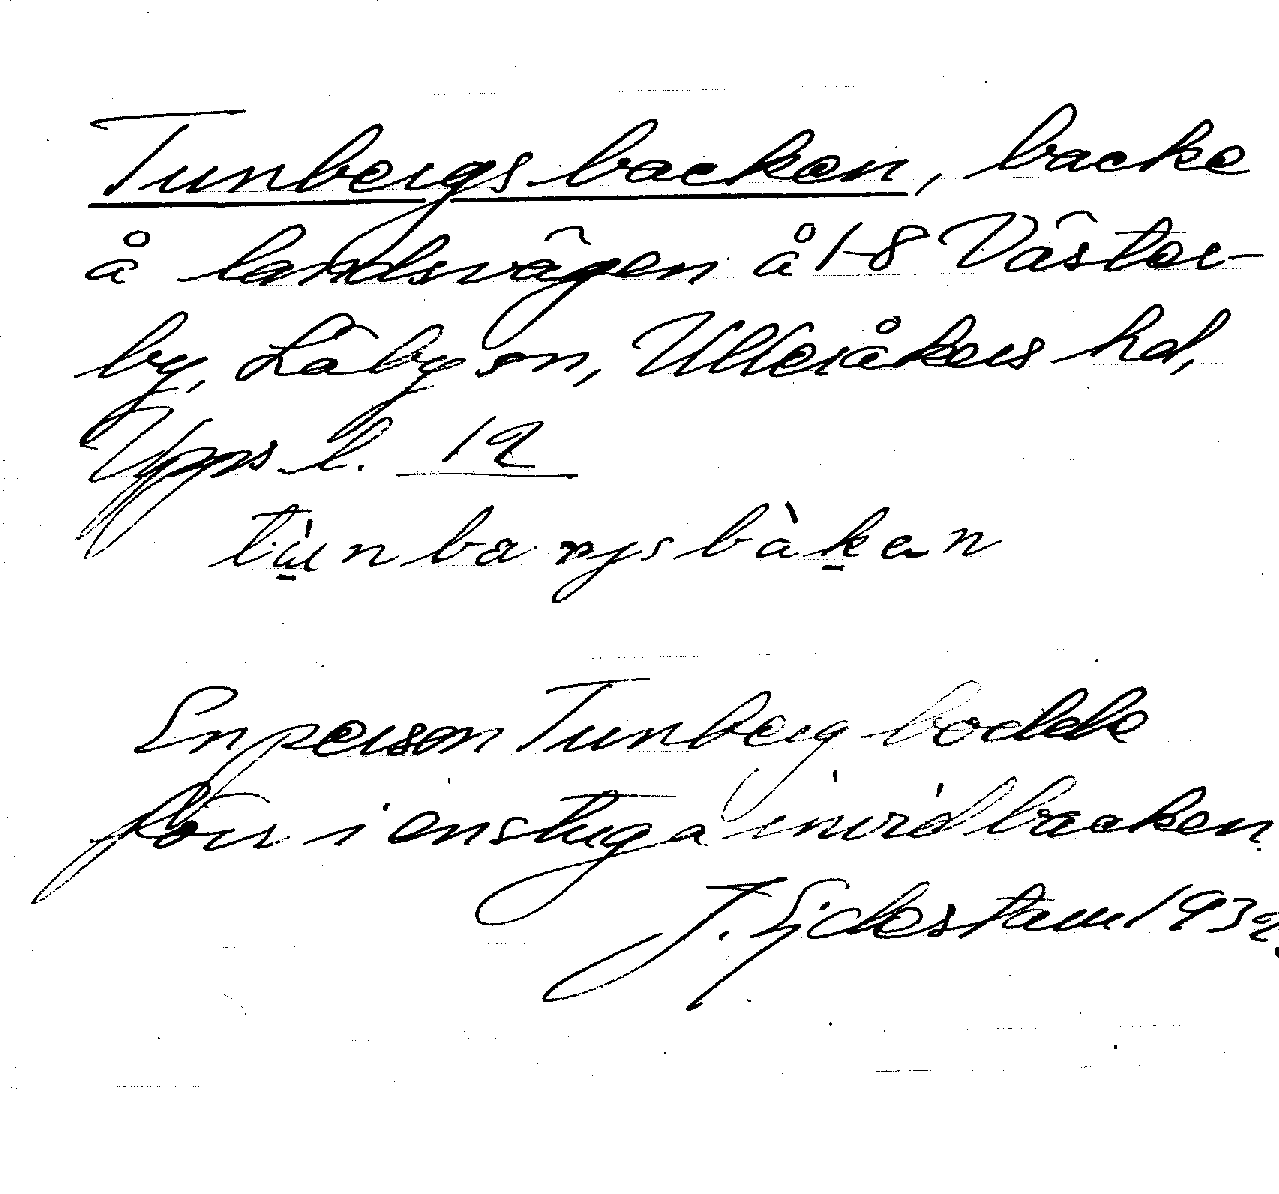 Tunbergsbacken, backe
å landsvägen å 1-8 Väster-
by, Läby sn, Ulleråkers hd,
Upps. l. 12
En person Tunberg bodde
förr i en stuga invid backen.
J. Ejdestam 1932.